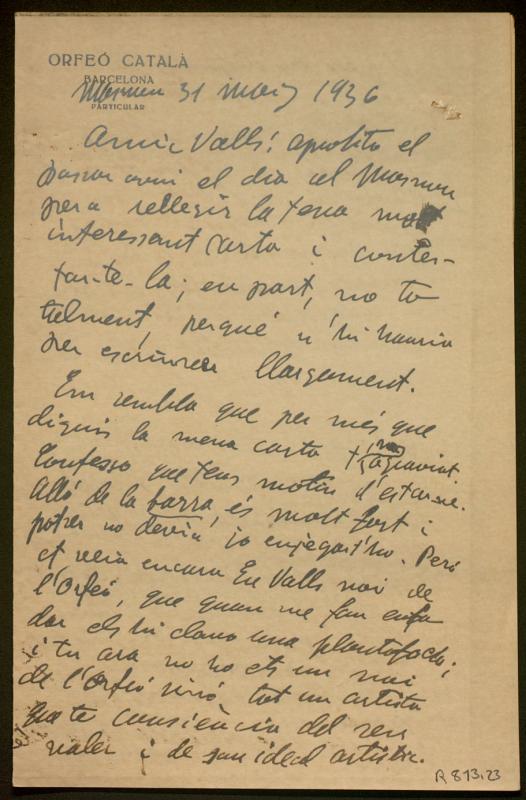 ORFEÓ CATALÀ
BARCELONA
PARTICULAR
Masnou 31 maig 1936
Amic Valls: aprofito el
passar avui el dia al Masnou
per a rellegir la teva molt
interessant carta i contes-
tar-te-la; en part, no to
talment, perquè n'hi hauria
per escriure llargament.
Em sembla que per més que
diguis la meva carta t'ha agraviat.
Confesso que tens motiu d'estar-ne.
Allò de la barra és molt fort i
potser no devia jo engegar-t'ho. Però
et veia encara En Valls noi de
l'Orfeó, que quan me fan enfa
dar els hi clavo una plantofada;
i tu ara no ho ets un noi
de l'Orfeó sinó tot un artista
que te consciència del seu
valer i de son ideal artístic.
R 813,23